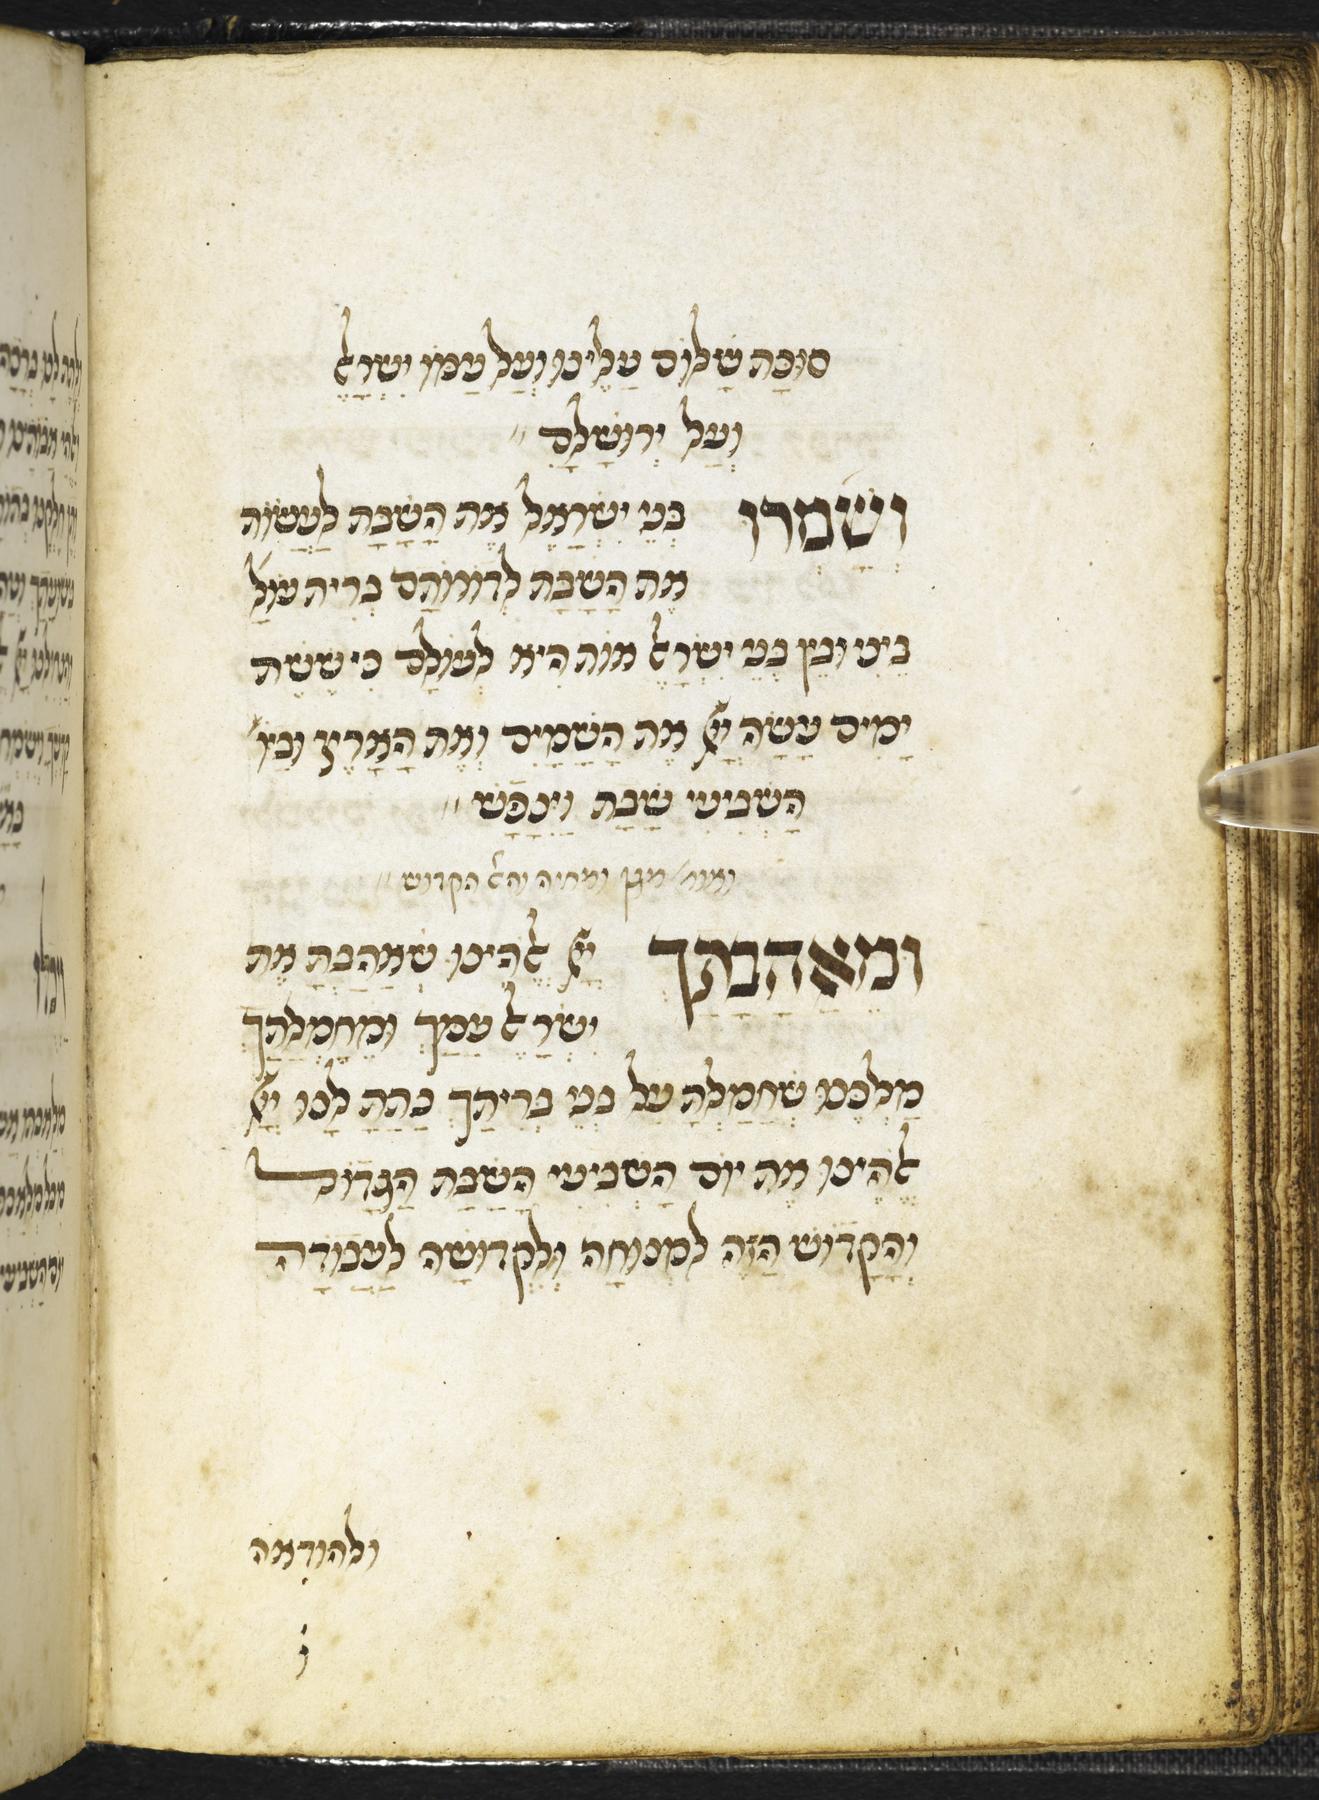 סוּכַּת שָׁלוֹם עָלֵינוּ וְעַל עַמּוֹ יִשְׂרָאֵל
וְעַל יְרוּשָׁלִָם
וְשָׁמְרוּ בְנֵי יִשְׂרָאֵל אֶת הַשַּׁבָּת לַעֲשׂוֹת
אֶת הַשַּׁבָּת לְדוֹרוֹתָם בְּרִית עוֹלָ
בֵּינִי וּבֵין בְּנֵי יִשְׂרָאֵל אוֹת הִיא לְעוֹלָם כִּי שֵׁשֶׁת
יָמִים עָשָׂה יְיָ אֶת הַשָּׁמַיִם וְאֶת הָאָרֶץ וּבַיּוֹ
הַשְּׁבִיעִי שָׁבַת וַיִּנָּפַשׁ
ואומ׳ מגן ומחיה והאל הקדוש
וּמֵאַהֲבָתְךָ יְיָ אֱלֹהֵינוּ שֶׁאָהַבְתָּ אֶת
יִשְׂרָאֵל עַמָּךְ וּמֵחֶמְלָתְךָ
מַלְכֵּנוּ שֶׁחָמַלְתָּ עַל בְּנֵי בְרִיתָךְ נָתַתָּ לָנוּ יְיָ
אֱלֹהֵינוּ אֶת יוֹם הַשְּׁבִיעִי הַשַּׁבָּת הַגָּדוֹל
וְהַקָּדוֹשׁ הַזֶּה לִמְנוּחָה וְלִקְדוּשָּׁה לַעֲבוֹדָה
ולהודאה